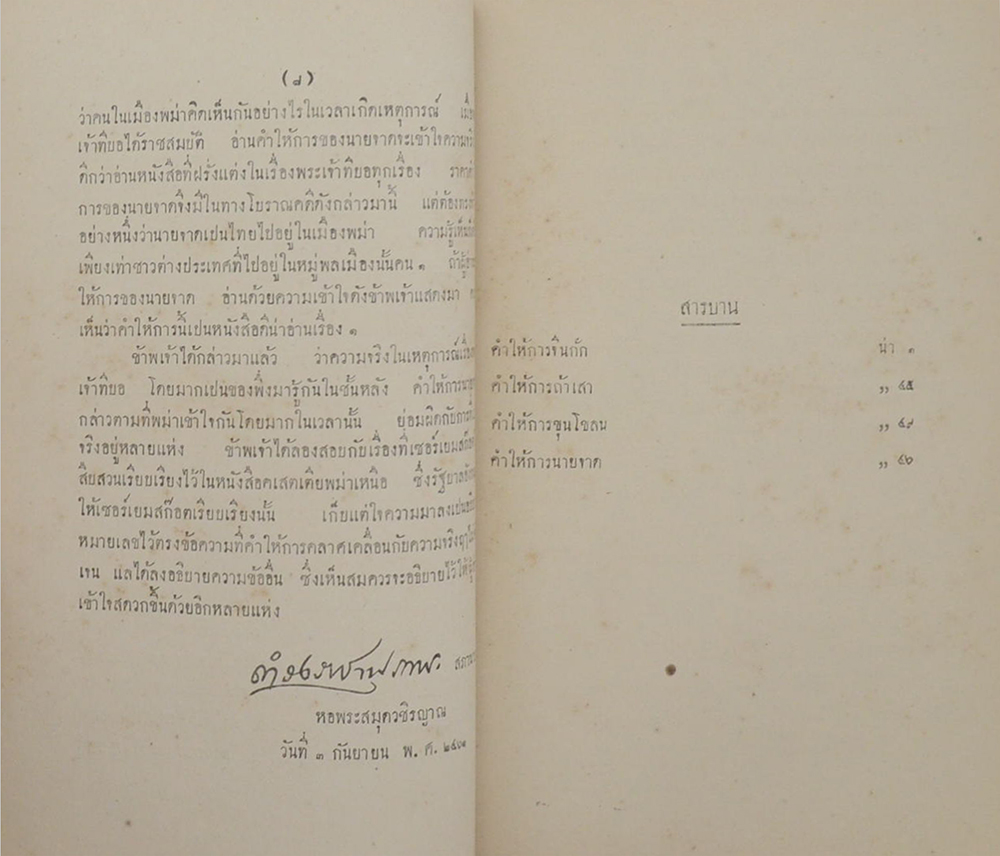 (๘)
ว่าคนในเมืองพม่าคิดเห็นกันอย่างไรในเวลาเกิดเหตุการณ์
เจ้าทีบอได้ราชสมบัติ อ่านคำให้การของนายจาดจะเข้าใจความ
ดีกว่าอ่านหนังสือที่ฝรั่งแต่งในเรื่องพระเจ้าทีบอทุกเรื่อง
การของนายจาดจึงมีในทางโบราณคดีดังกล่าวมานี้ แต่ต้อง
อย่างหนึ่งว่านายจาดเปนไทยไปอยู่ในเมืองพม่า ความรู้
เพียงเท่าชาวต่างประเทศที่ไปอยู่ในหมู่พลเมืองนั้นคน ๑
ให้การของนายจาด อ่านด้วยความเข้าใจดังข้าพเจ้าแสดงมา
เห็นว่าคำให้การนี้เปนหนังสือดีน่าอ่านเรื่อง ๑
ข้าพเจ้าได้กล่าวมาแล้ว ว่าความจริงในเหตุการณ์
เจ้าทีบอ โดยมากเปนของพึ่งมารู้กันในชั้นหลัง คำให้การ
กล่าวตามที่พม่าเข้าใจกันโดยมากในเวลานั้น ย่อมผิดกับการ
จริงอยู่หลายแห่ง ข้าพเจ้าได้ลองสอบกับเรื่องที่เซอร์เยมสก๊อต
สืบสวนเรียบเรียงไว้ในหนังสือคเสตเตียพม่าเหนือ ซึ่งรัฐบาล
ให้เซอร์เยมสก๊อตเรียบเรียงนั้น เก็บแต่ใจความมาลงเปน
หมายเลขไว้ตรงข้อความที่คำให้การคลาศเคลื่อนกับความจริง
เจน แลได้ลงอธิบายความข้ออื่น ซึ่งเห็นสมควรจะอธิบายไว้ให้
เข้าใจสดวกขึ้นด้วยอิกหลายแห่ง
ดำรงราชานุภาพ
หอพระสมุดวชิรญาณ
วันที่ ๓ กันยายน พ. ศ.
สารบาน
คำให้การจีนกั๊ก น่า ๑
คำให้การถ้าเสา ,, ๔๕
คำให้การขุนโขลน ,, ๔๙
คำให้การนายจาด ,, ๕๖